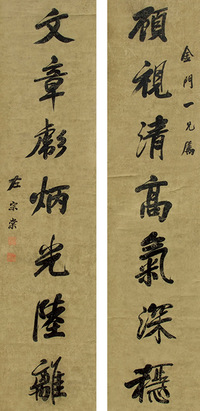 金門一兄屬
顧視清高氣深穩
文章彪炳光陸離
左宗棠